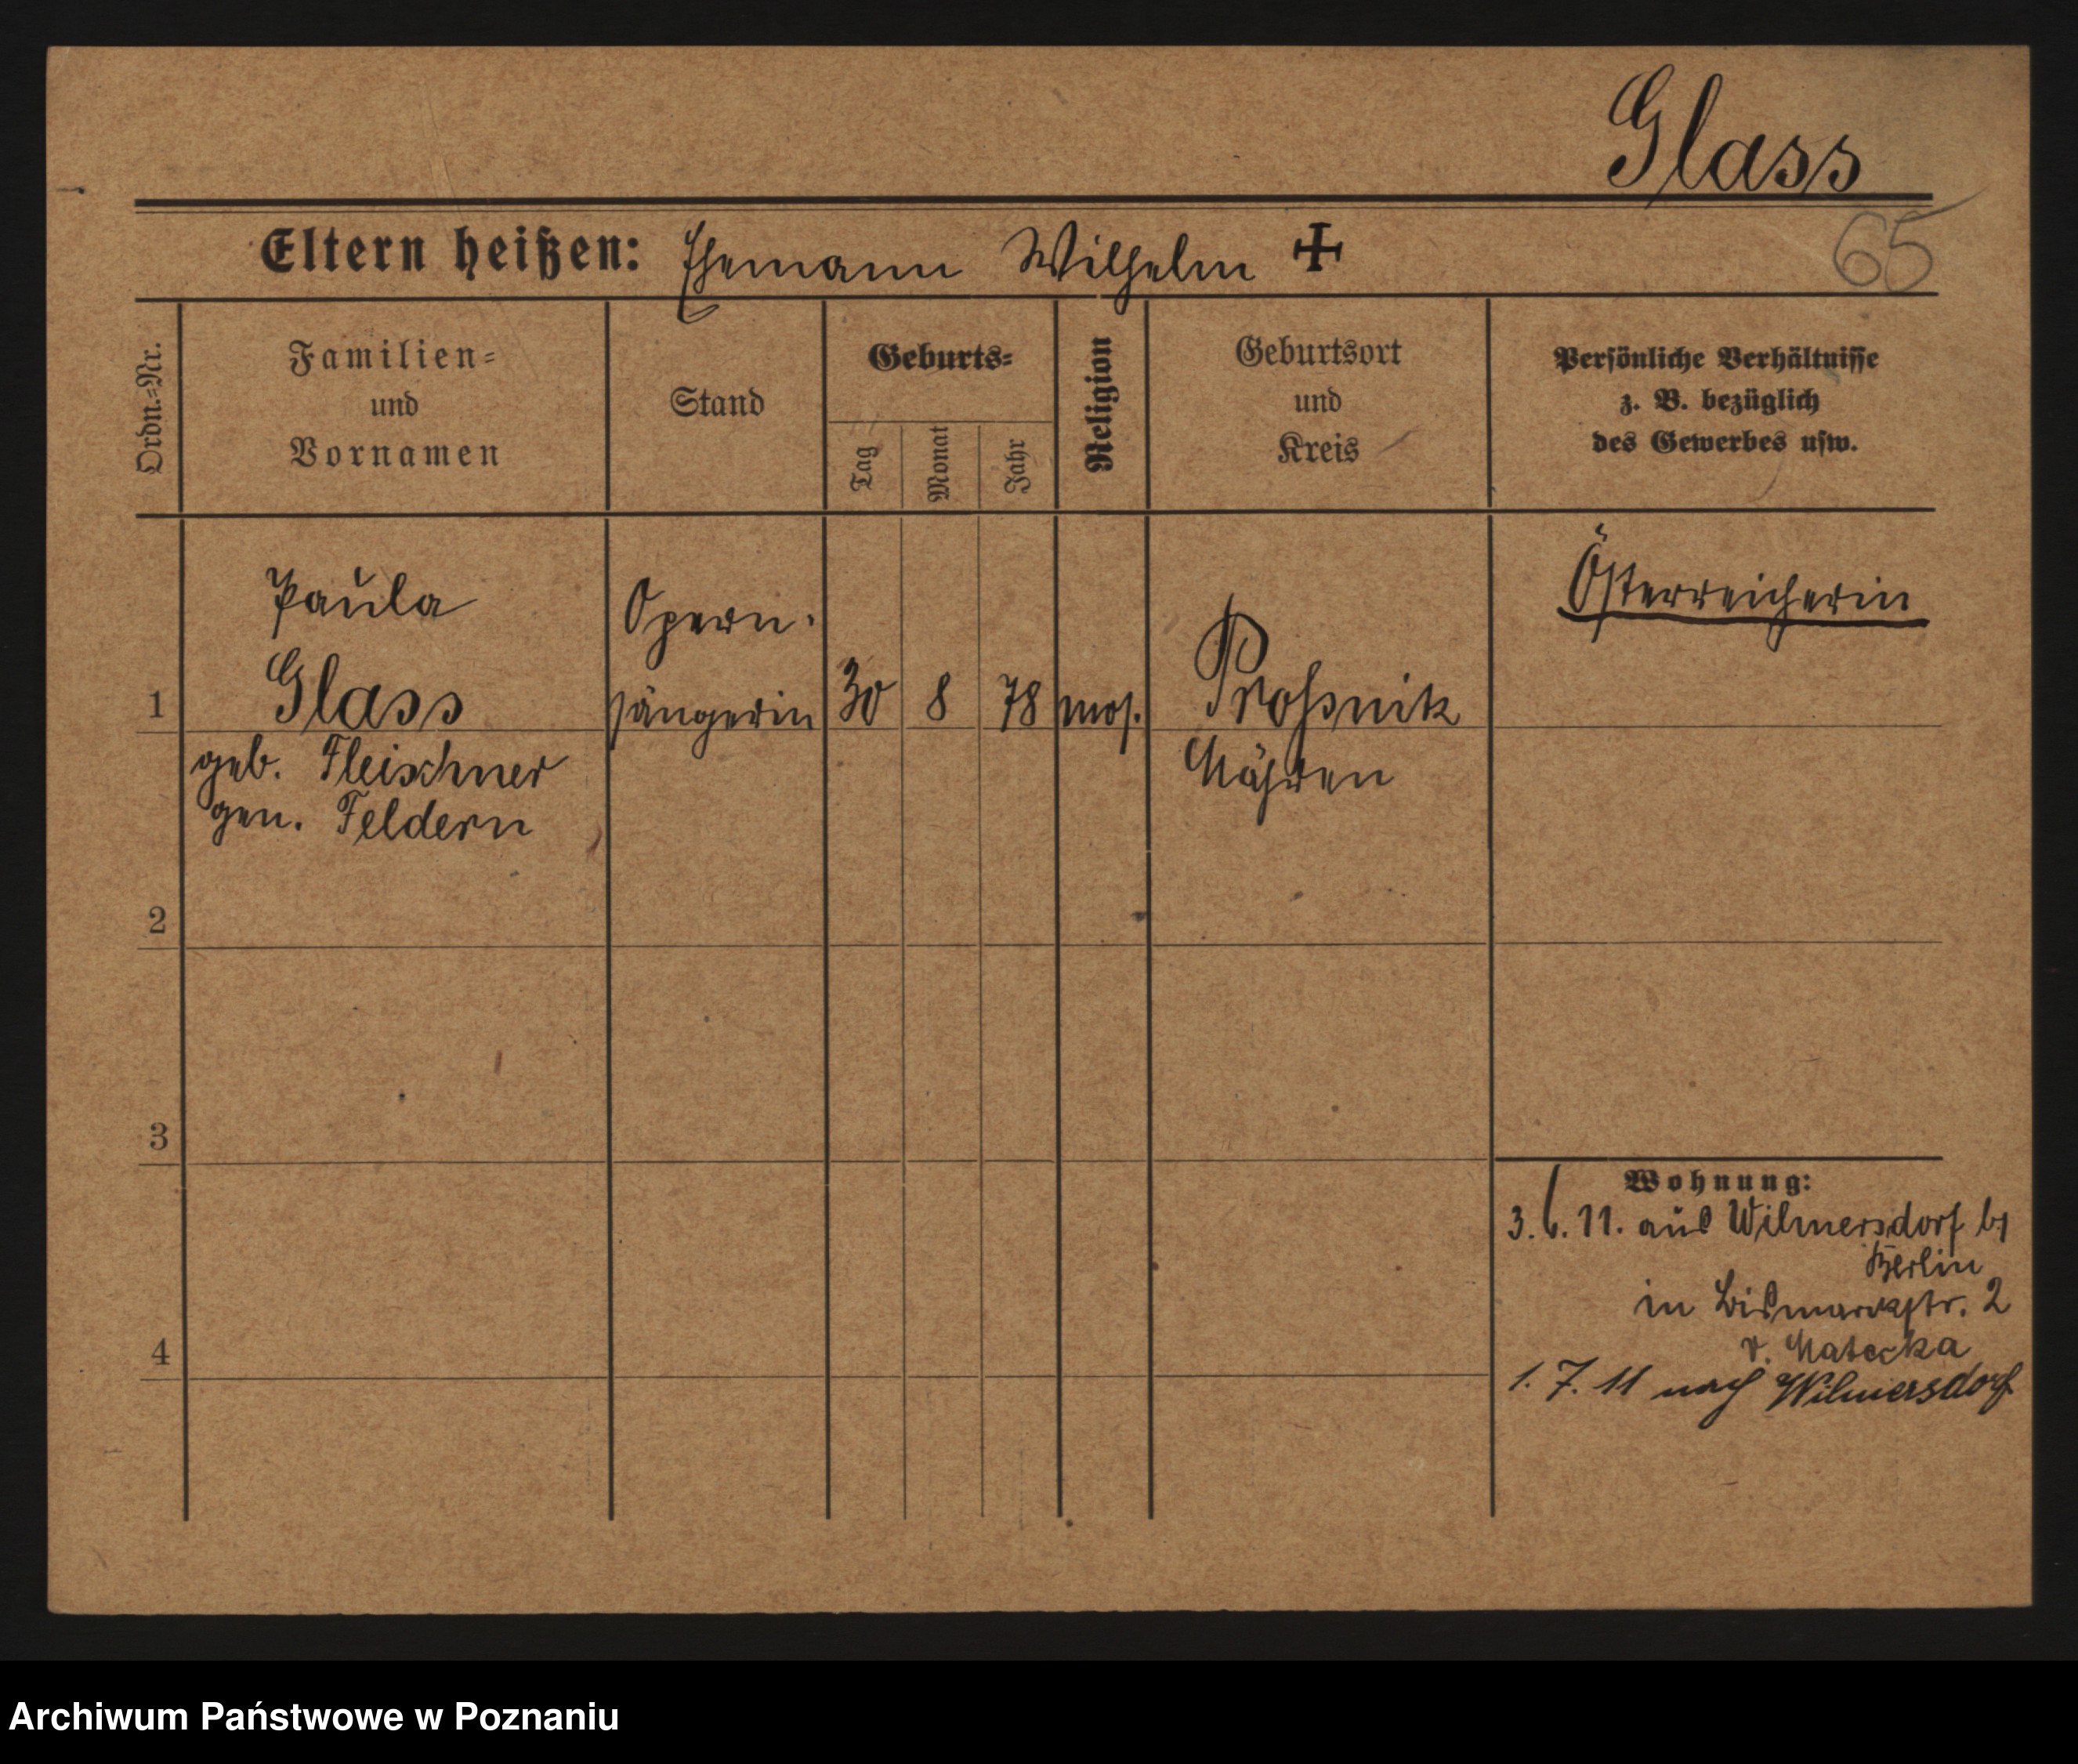 Glass
65
Eltern heißen: Ehemann Wilhelm ✠
Ordn.=Nr.
Familien=
und
Vornamen
Stand
Geburts=
Tag
Monat
Jahr
Religion
Geburtsort
und
Kreis
Persönliche Verhältnisse
z. B. bezüglich
des Gewerbes usw.
Österreicherin
Paula
Opern-
1 Glass sängerin 30 8 78 mos. Proßnik
geb. Fleischner Mähren
gen. Feldern
2
3
Wohnung:
3. 6. 11. aus Wilmersdorf b/
Berlin
in Bismarckstr. 2
v. Matecka
4
1. 7. 11 nach Wilmersdorf
Archiwum Państwowe w Poznaniu